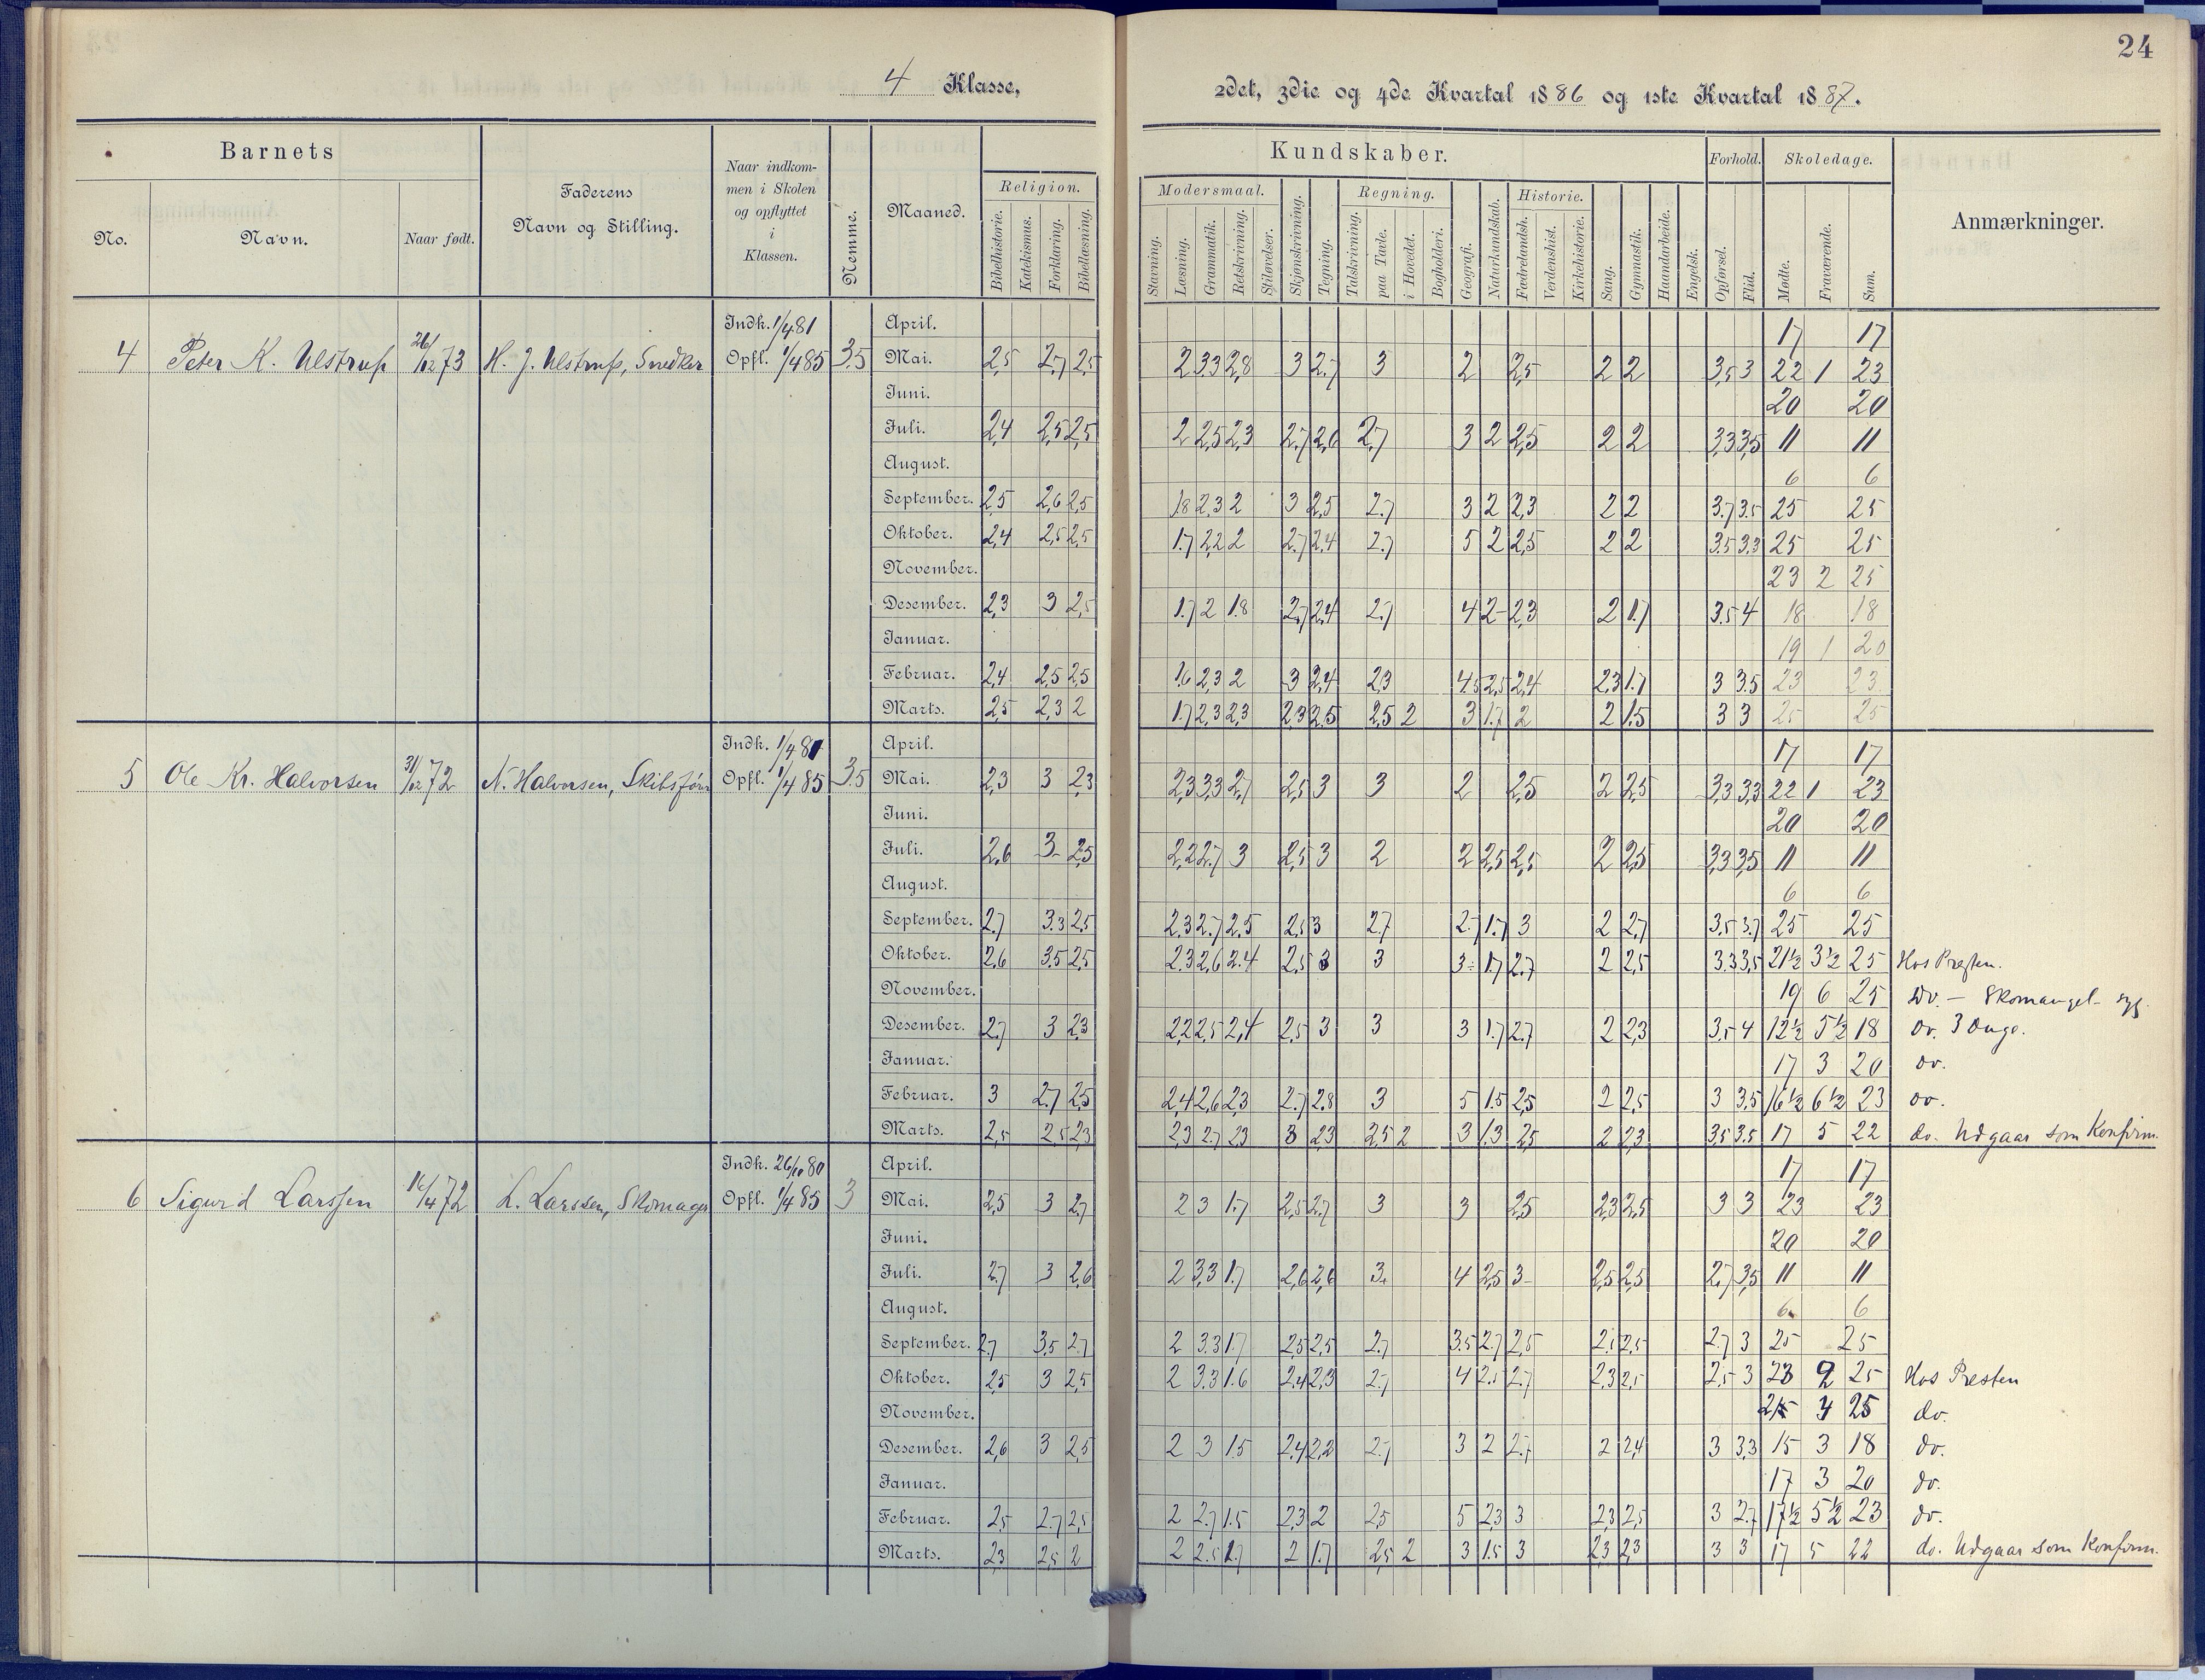 24
4 Klasse,
2det, 3die og 4de Kvartal 1886 og 1ste Kvartal 1887.
Barnets
No.
Navn.
Naar født.
Faderens
Navn og Stilling.
Naar indkom-
men i Skolen
og opflyttet
i
Klassen.
Nemme.
Maaned.
Religion.
Bibelhistorie. Katekismus. Forklaring. Bibellæsning.
Kundskaber.
Modersmaal.
Stavning. Læsning. Grammatik. Retskrivning. Stiløvelser. Skjønskrivning. Tegning.
Regning.
Talskrivning. paa Tavle. i Hovedet. Bogholderi. Geografi. Naturkundskab.
Historie.
Fædrelandsh. Verdenshist. Kirkehistorie. Sang. Gymnastik. Haandarbeide. Engelsk.
Forhold.
Opførsel. Flid.
Skoledage.
Mødte. Fraværende. Sum.
Anmærkninger.
Indk. 1/4 81 April. 17 17
4 Peter K. Ulstrup 26/12 73 H. J. Ulstrup, Snedker Opfl. 1/4 85 3.5 Mai. 2,5 2,7 2,5 2 3,3 2,8 3 2.7 3 2 2,5 2 2 3,5 3 22 1 23
Juni. 20 20
Juli. 2,4 2,5 2,5 2 2,5 2,3 2.7 2,6 2,7 3 2 2,5 2 2 3,3 3,5 11 11
August. 6 6
September. 2,5 2,6 2,5 1.8 2,3 2 3 2,5 2.7 3 2 2,3 2 2 3.7 3.5 25 25
Oktober. 2,4 2,5 2,5 1.7 2,2 2 2.7 2,4 2.7 5 2 2,5 2 2 3.5 3.3 25 25
November. 23 2 25
Desember. 2,3 3 2,5 1.7 2 1.8 2,7 2,4 2,7 4 2 2,3 2 1.7 3.5 4 18 18
Januar. 19 1 20
Februar. 2,4 2,5 2,5 1.6 2,3 2 3 2,4 2,3 4,5 2,5 2,4 2,3 1.7 3 3.5 23 23
Marts. 2,5 2,3 2 1.7 2,3 2,3 2,3 2,5 2,5 2 3 1.7 2 2 1.5 3 3 25 25
Indk. 1/4 81 April. 17 17
5 Ole Kr. Halvorsen 31/12 72 N. Halvorsen, Skibsfører Opfl. 1/4 85 3.5 Mai. 2,3 3 2,3 2,3 3,3 2,7 2,5 3 3 2 2,5 2 2,5 3,3 3,3 22 1 23
Juni. 20 20
Juli. 2,6 3 2,5 2,2 2,7 3 2,5 3 2 2 2,5 2,5 2 2,5 3,3 3,5 11 11
August. 6 6
September. 2.7 3.3 2,5 2.3 2.7 2.5 2,5 3 2.7 2.7 1.7 3 2 2,7 3.5 3.7 25 25
Oktober. 2,6 3.5 2,5 2.3 2,6 2.4 2,5 3 3 3 1.7 2.7 2 2,5 3.3 3,5 21½ 3½ 25 Hos Presten.
November. 19 6 25 Do. - Skomangel - syg.
Desember. 2.7 3 2,3 2,2 2,5 2,4 2,5 3 3 3 1.7 2.7 2 2,3 3.5 4 12½ 5½ 18 do. 3 Dage.
Januar. 17 3 20 do.
Februar. 3 2.7 2,5 2,4 2,6 2,3 2.7 2.8 3 5 1.5 2,5 2 2,5 3 3,5 16½ 6½ 23 do.
Marts. 2,5 2,5 2,3 2,3 2.7 2,3 3 2,3 2,5 2 3 1.3 2,5 2 2,3 3,5 3.5 17 5 22 do. Udgaar som Konfirm.
Indk. 26/10 80 April. 17 17
6 Sigurd Larssen 14/4 72 L. Larssen, Skomager Opfl. 1/4 85 3 Mai. 2,5 3 2,7 2 3 1.7 2,5 2.7 3 3 2,5 2,3 2,5 3 3 23 23
Juni. 20 20
Juli. 2.7 3 2,6 2 3,3 1.7 2,6 2,6 3. 4 2,5 3 2,5 2,5 2,7 3,5 11 11
August. 6 6
September. 2.7 3.5 2.7 2 3.3 1.7 2,5 2,5 2.7 3.5 2.7 2,5 2,5 2,5 2.7 3 25 25
Oktober. 2,5 3 2,5 2 3,3 1.6 2.4 2,3 2.7 4 2,5 2.7 2,3 2,5 2,5 3 23 2 25 Hos Presten
November. 21 4 25 do.
Desember. 2,6 3 2,5 2 3 1.5 2,4 2,2 2.7 3 2 2.7 2 2,4 3 3,3 15 3 18 do.
Januar. 17 3 20 do.
Februar. 2,5 2.7 2,5 2 2.7 1.5 2,3 2 2,5 5 2,3 3 2,3 2,5 3 2.7 17½ 5½ 23 do.
Marts. 2,3 2,5 2 2 2.5 1.7 2 1.7 2,5 2 3 1.5 3 2,3 2,3 3 3 17 5 22 do. Udgaar som Konfirm.